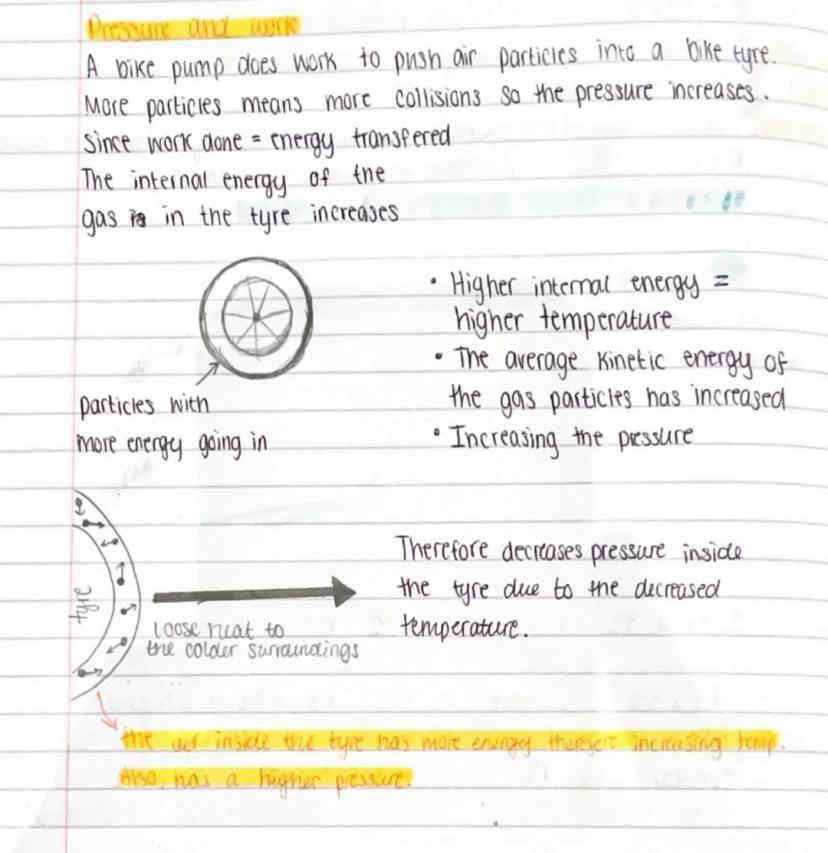 Pressure and work
A bike pump does work to push air particles into a bike tyre.
More particles means more collisions so the pressure increases.
Since work done = energy transfered
The internal energy of the
gas is in the tyre increases
• Higher internal energy =
higher temperature
• The average kinetic energy of
the gas particles has increased
• Increasing the pressure
particles with
more energy going in
tyre
loose heat to
the colder surroundings
Therefore decreases pressure inside
the tyre due to the decreased
temperature.
the air inside the tyre has more energy therefore increasing temp.
Also, has a higher pressure.